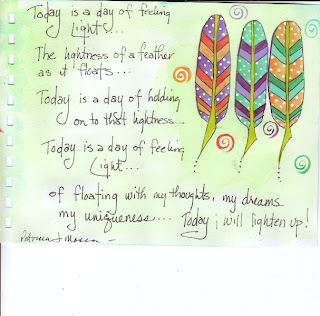 Today is a day of feeling
Light...
The lightness of a feather
as it floats...
Today is a day of holding
on to that lightness...
Today is a day of feeling
Light...
of floating with my thoughts, my dreams
my uniqueness... Today i will lighten up!
Patricia J